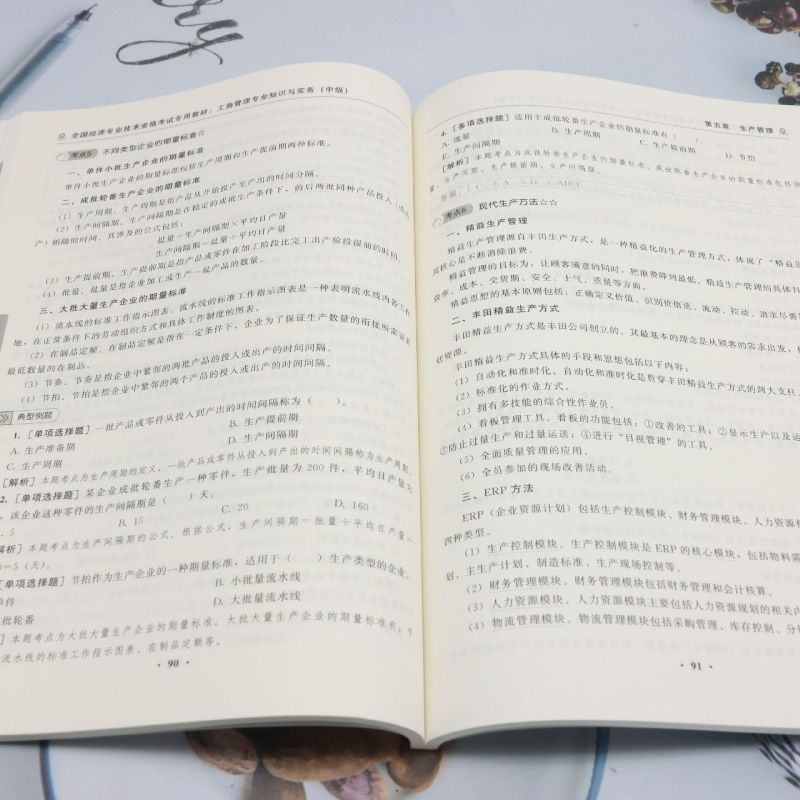 ry
全国经济专业技术资格考试专用教材：工商管理专业知识与实务（中级）
考点5 不同类型企业的期量标准☆
一、单件小批生产企业的期量标准
单件小批生产企业的期量标准包括生产周期和生产提前期两种标准。
二、成批轮番生产企业的期量标准
（1）生产周期。生产周期是指产品从开始投产至产出的时间分隔。
（2）生产间隔期。生产间隔期是在稳定的成批生产条件下，前后两批同种产品投入（或出
产）相隔的时间。其涉及的公式包括：
批量＝生产间隔期×平均日产量
生产间隔期＝批量÷平均日产量
（3）生产提前期。生产提前期是指产品或零件在加工阶段比完工出产阶段提前的时间。
（4）批量。批量是指企业加工或生产一批产品的数量。
三、大批大量生产企业的期量标准
（1）流水线的标准工作指示图表。流水线的标准工作指示图表是一种表明流水线内各工作
地，在正常条件下的劳动组织方式和具体工作制度的图表。
（2）在制品定额。在制品定额是指在一定条件下，企业为了保证生产数量的衔接所需要的
最低数量的在制品。
（3）节奏。节奏是指企业中紧邻的两批产品的投入或出产的时间间隔。
（4）节拍。节拍是指企业中紧邻的两个产品的投入或出产的时间间隔。
典型例题
1. [单项选择题] 一批产品或零件从投入到产出的时间间隔称为（ ）。
A. 生产准备期 B. 生产提前期
C. 生产周期 D. 生产间隔期
[解析] 本题考点为生产周期的定义。一批产品或零件从投入到产出的时间间隔称为生产周期。
2. [单项选择题] 某企业成批轮番生产一种零件，生产批量为 200 件，平均日产量为
，该企业这种零件的生产间隔期是（ ）天。
. 5 B. 15 C. 20 D. 160
解析] 本题考点为生产间隔期的公式。根据公式，生产间隔期＝批量÷平均日产量＝
＝5（天）。
[单项选择题] 节拍作为生产企业的一种期量标准，适用于（ ）生产类型的企业。
单件 B. 小批量流水线
批轮番 D. 大批量流水线
] 本题考点为大批大量生产企业的期量标准。大批大量生产企业的期量标准有：节
流水线的标准工作指示图表、在制品定额等。
· 90 ·
第五章 生产管理
4. [多项选择题] 适用于成批轮番生产企业的期量标准有（ ）。
A. 批量 B. 生产周期 C. 生产提前期 D. 节拍
E. 生产间隔期
[解析] 本题考点为成批轮番生产企业的期量标准。成批轮番生产企业的期量标准包括
量、生产周期、生产提前期、生产间隔期。
考点6 现代生产方法☆☆
一、精益生产管理
精益生产管理源自丰田生产方式，是一种精益化的生产管理方式，体现了“精益思
其核心是不断消除浪费。
精益管理的目标为：让顾客满意的同时，把浪费降到最低。精益生产管理的具体目
效率、成本、交货期、安全、士气、质量等方面。
精益思想的基本原则包括：正确定义价值、识别价值流、流动、拉动、追求尽善
二、丰田精益生产方式
丰田精益生产方式是丰田公司创立的，其最基本的理念是从顾客的需求出发，杜
切资源。
丰田精益生产方式具体的手段和思想包括以下内容：
（1）自动化和准时化。自动化和准时化是贯穿丰田精益生产方式的两大支柱。
（2）标准化的作业方式。
（3）拥有多技能的综合性作业员。
（4）看板管理工具。看板的功能包括：①改善的工具；②显示生产以及运
③防止过量生产和过量运送；④进行“目视管理”的工具。
（5）全面质量管理的应用。
（6）全员参加的现场改善活动。
三、ERP 方法
ERP（企业资源计划）包括生产控制模块、财务管理模块、人力资源模
四种类型。
（1）生产控制模块。生产控制模块是 ERP 的核心模块，包括物料需
划、主生产计划、制造标准、生产现场控制等。
（2）财务管理模块。财务管理模块包括财务管理和会计核算。
（3）人力资源模块。人力资源模块主要包括人力资源规划的相关内
（4）物流管理模块。物流管理模块包括采购管理、库存控制、分销
· 91 ·